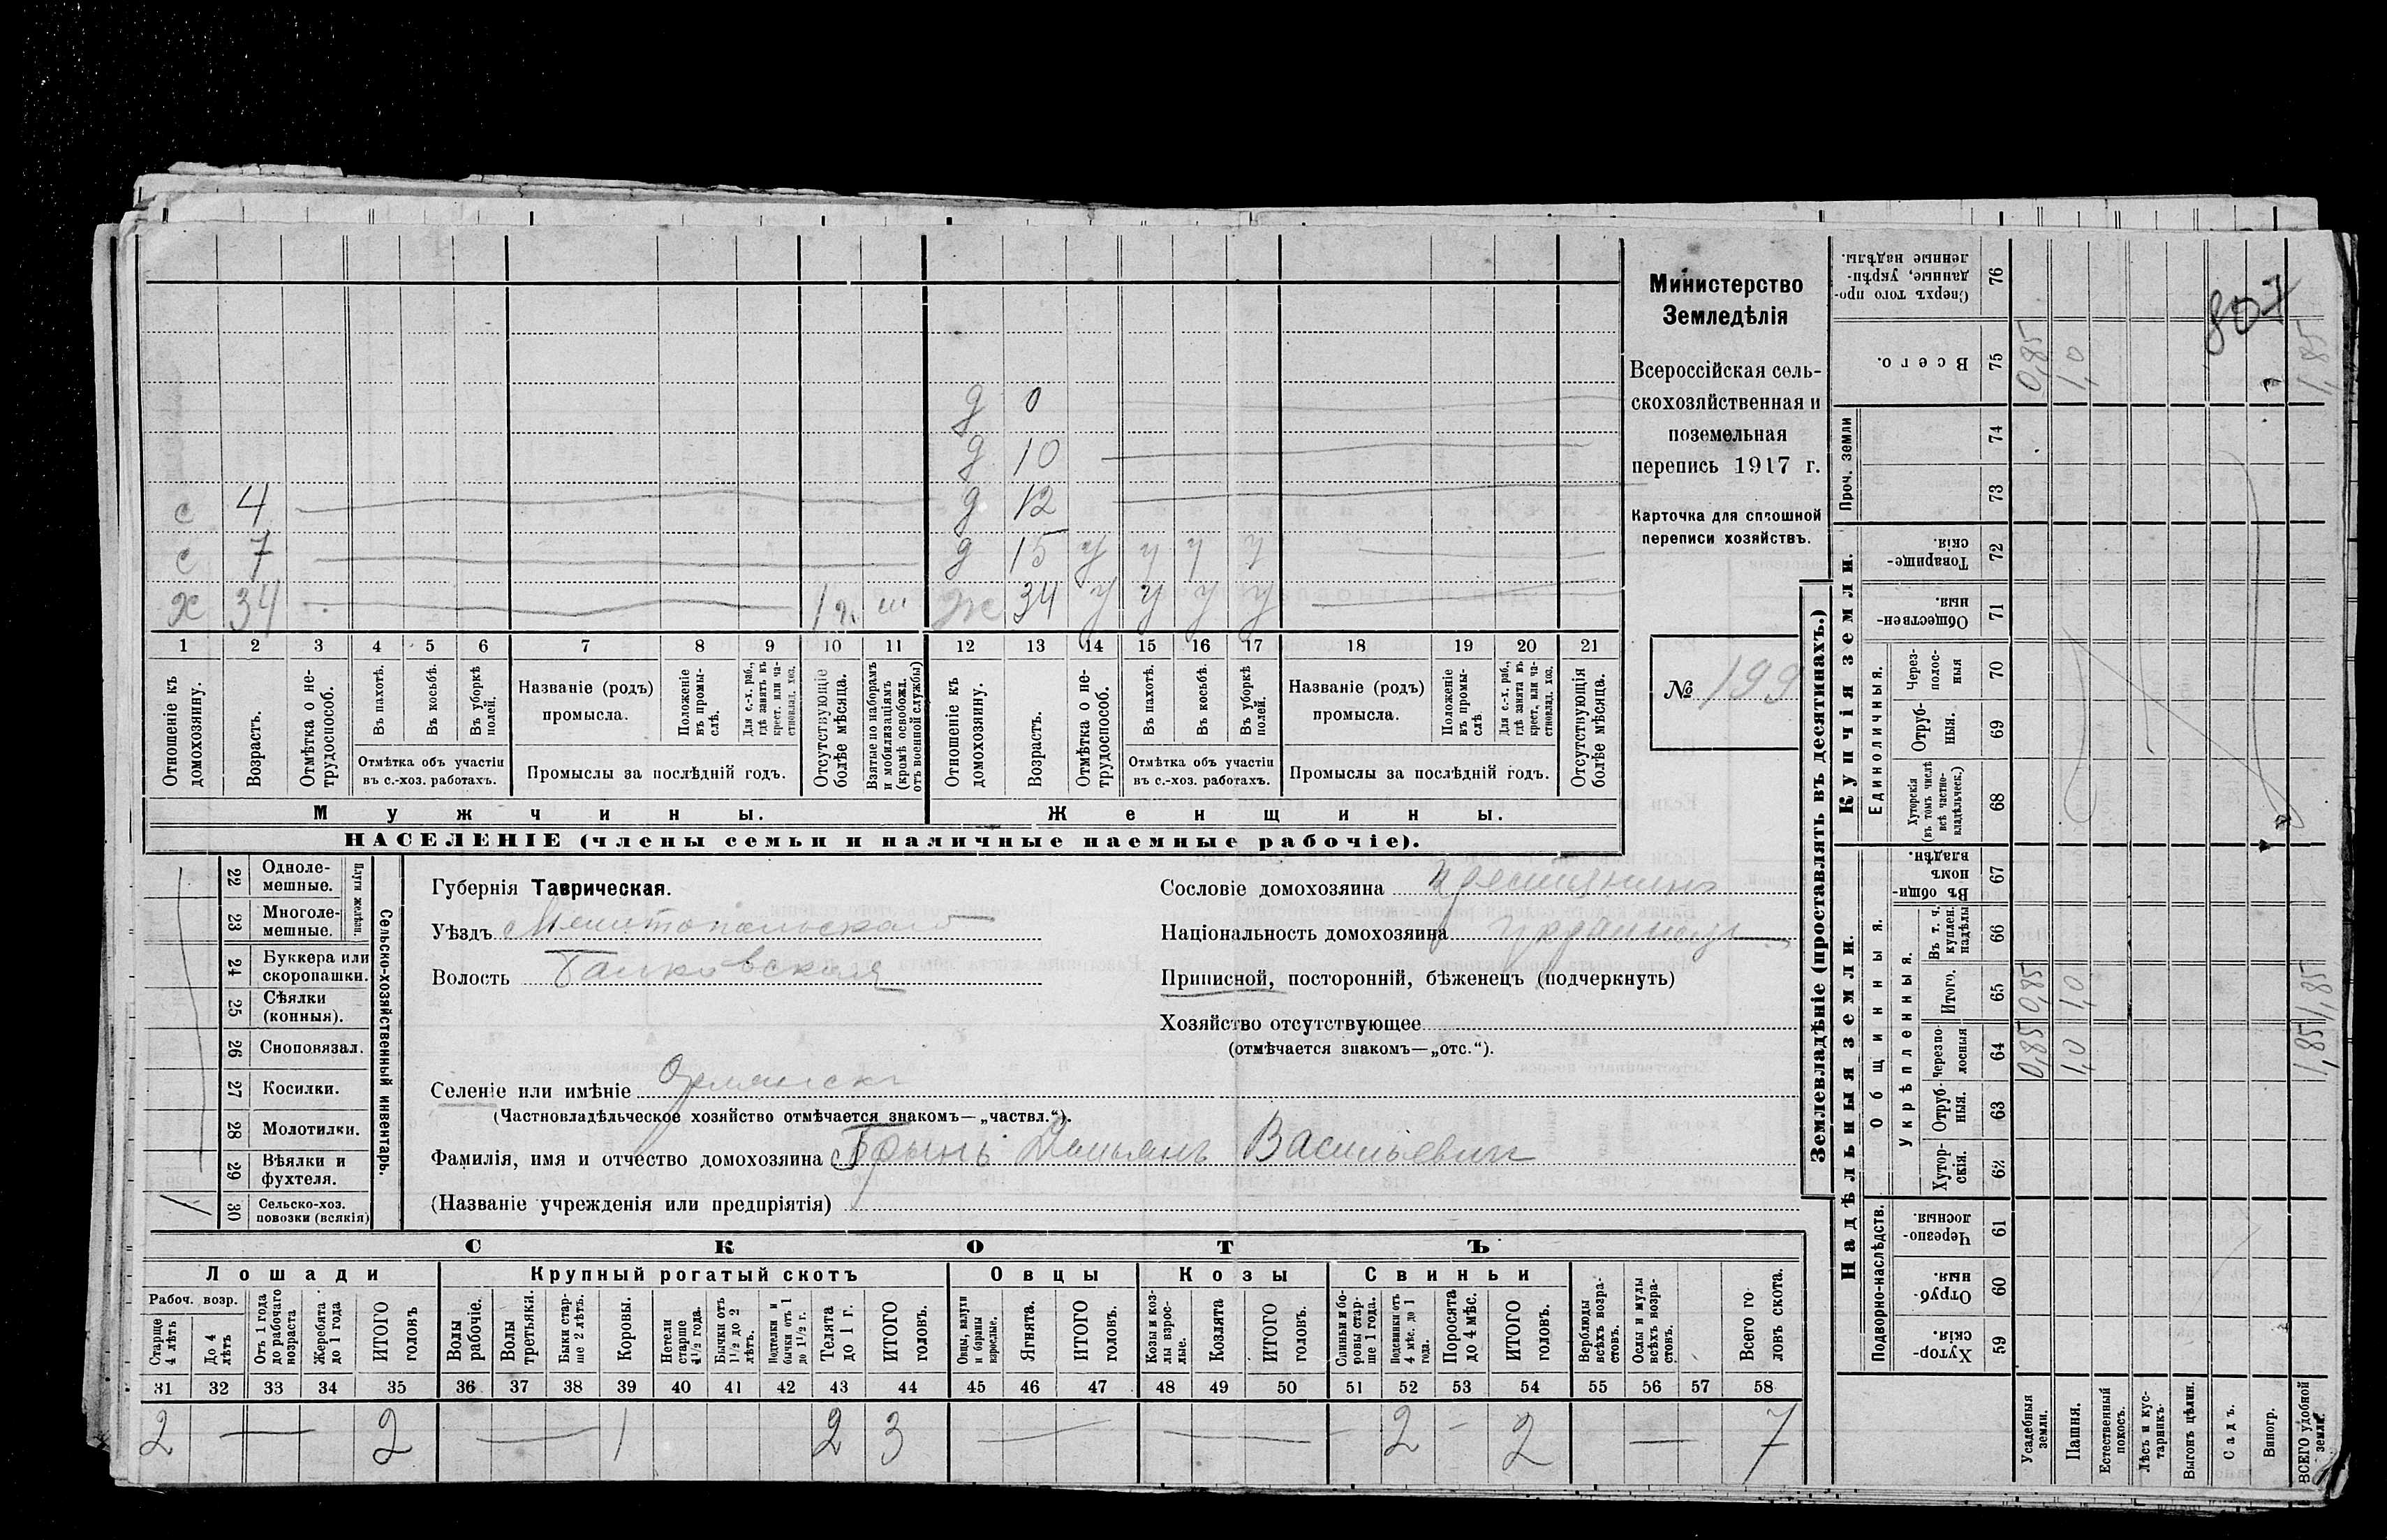 Министерство
Земледѣлія
Всероссійская сель-
скохозяйственная и
поземельная
перепись 1917 г.
Карточка для сплошной
переписи хозяйствъ.
№ 199
807
д 0
д 10
с 4 д 12
с 7 д 15 у у у у
х 34 1 г. ж 34 у у у у
1 2 3 4 5 6 7 8 9 10 11 12 13 14 15 16 17 18 19 20 21
Отношеніе къ домохозяину.
Возрастъ.
Отмѣтка о не-трудоспособ.
Въ пахотѣ.
Въ косьбѣ.
Въ уборкѣ полей.
Отмѣтка объ участіи въ с.-хоз. работахъ.
Названіе (родъ) промысла.
Положеніе въ промы-слѣ.
Для с.-х. раб., гдѣ занятъ въ крест. или ча-стновлад. хоз.
Промыслы за послѣдній годъ.
Отсутствующіе болѣе мѣсяца.
Взятые по наборамъ и мобилизаціямъ (кромѣ освобожд. отъ военной службы)
Отношеніе къ домохозяину.
Возрастъ.
Отмѣтка о не-трудоспособ.
Въ пахотѣ.
Въ косьбѣ.
Въ уборкѣ полей.
Отмѣтка объ участіи въ с.-хоз. работахъ.
Названіе (родъ) промысла.
Положеніе въ промы-слѣ.
Для с.-х. раб., гдѣ занята въ крест. или ча-стновлад. хоз.
Промыслы за послѣдній годъ.
Отсутствующія болѣе мѣсяца.
Мужчины. Женщины.
НАСЕЛЕНІЕ (члены семьи и наличные наемные рабочіе).
22 Одноле-мешные.
23 Многоле-мешные.
Плуги желѣзн.
24 Буккера или скоропашки.
25 Сѣялки (конныя).
26 Сноповязал.
27 Косилки.
28 Молотилки.
29 Вѣялки и фухтеля.
1 30 Сельско-хоз. повозки (всякія)
Сельско-хозяйственный инвентарь.
Губернія Таврическая.
Уѣздъ Мелитопольскаго
Волость Балковская
Селеніе или имѣніе
(Частновладѣльческое хозяйство отмѣчается знакомъ—„частвл.“).
Фамилія, имя и отчество домохозяина Грынь Демьянъ Васильевич
(Названіе учрежденія или предпріятія)
Сословіе домохозяина крестьянинъ
Національность домохозяина украинецъ
Приписной, посторонній, бѣженецъ (подчеркнуть)
Хозяйство отсутствующее
(отмѣчается знакомъ—„отс.“).
СКОТЪ
Лошади Крупный рогатый скотъ Овцы Козы Свиньи
Рабоч. возр.
Старше 4 лѣтъ
До 4 лѣтъ
Отъ 1 года до рабочаго возраста
Жеребята до 1 года
ИТОГО головъ
Волы рабочіе.
Волы третьяки.
Быки стар-ше 2 лѣтъ.
Коровы.
Нетели старше 1½ года.
Бычки отъ 1½ до 2 лѣтъ.
Подтелки и бычки отъ 1 до 1½ г.
Телята до 1 г.
ИТОГО головъ.
Овцы, валухи и бараны взрослые.
Ягнята.
ИТОГО головъ.
Козы и коз-лы взрос-лые.
Козлята
ИТОГО головъ.
Свиньи и бо-ровы стар-ше 1 года.
Подсвинки отъ 4 мѣс. до 1 года.
Поросята до 4 мѣс.
ИТОГО головъ.
Верблюды всѣхъ возра-стовъ.
Ослы и мулы всѣхъ возра-стовъ.
Всего го-ловъ скота.
31 32 33 34 35 36 37 38 39 40 41 42 43 44 45 46 47 48 49 50 51 52 53 54 55 56 57 58
2 — 2 — 1 2 3 — — 2 — 2 — 7
Землевладѣніе (проставлять въ десятинахъ.)
Надѣльныя земли. Купчія земли. Проч. земли
Подворно-наслѣдств.
Общинныя.
Укрѣпленныя.
Единоличныя.
Хутор-скія. 59
Отруб-ныя. 60
Черезпо-лосныя. 61
Хутор-скія. 62
Отруб-ныя. 63
Черезпо-лосныя 64
Итого. 65
Въ т. ч. куплен. надѣлы 66
Въ общин-номъ владѣн. 67
Хуторскія (въ томъ числѣ всѣ частно-владѣльческ.) 68
Отруб-ныя. 69
Через-полос-ныя 70
Обществен-ныя 71
Товарище-скія. 72
73
74
Всего. 75
Сверхъ того про-данные, укрѣп-ленные надѣлы. 76
Усадебныя земли. 0,85 0,85 0,85
Пашня. 1,0 1,0 1,0
Естественный покосъ.
Лѣсъ и кус-тарникъ.
Выгонъ цѣлин.
Садъ.
Виногр.
ВСЕГО удобной земли. 1,85 1,85 1,85